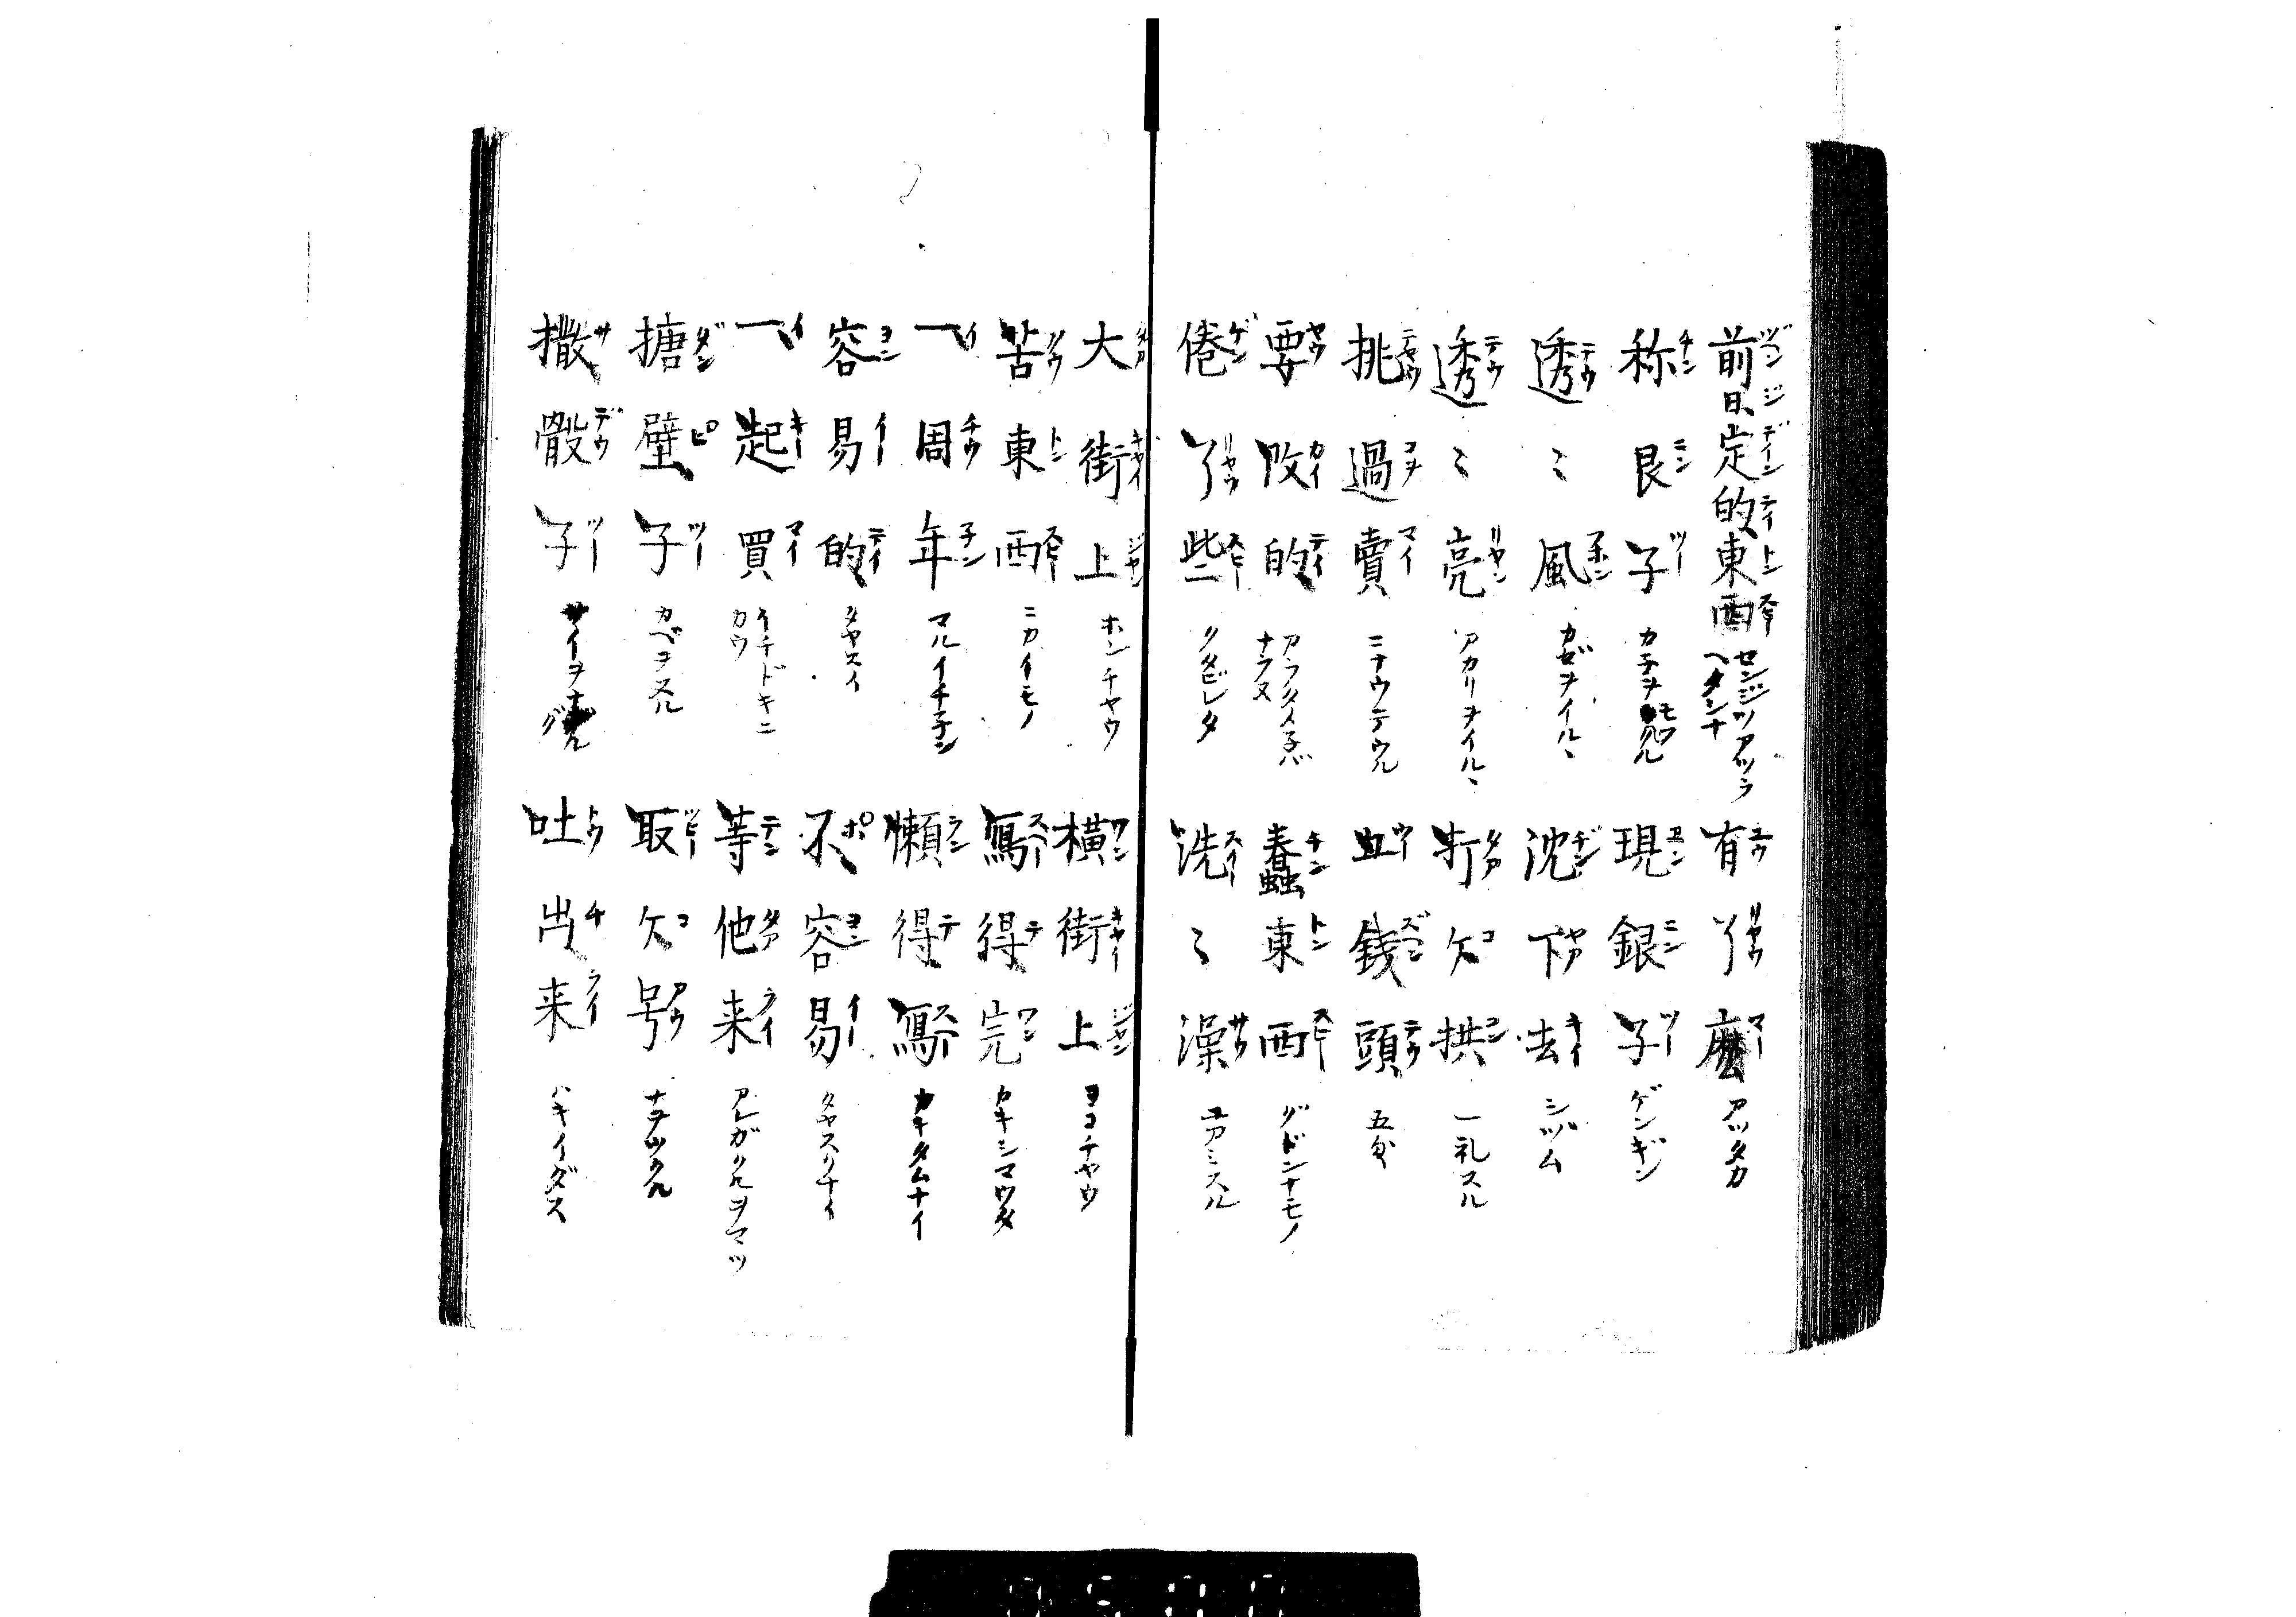 前日定的東西 センジツアツラヘタシナ
有了麽 アツタカ
称艮子 カ子ヲ
現銀子 ゲンギン
透〻風 カゼヲイルヽ
沈下去 シヅム
透〻亮 アカリヲイルヽ
打个拱 一礼スル
挑過賣 ニナウテウル
五錢頭 五匁
要改的 アラタメ子バナラヌ
蠢東西 グドンナモノ
倦了些 クタビレタ
洗〻澡 ユアミスル
大街上 ホンチヤウ
橫街上 ヨコチヤウ
苦東西 ニカイモノ
寫得完 カキシマウタ
一周年 マルイチ子ン
懶得寫 カキタムナイ
容易的 タヤスイ
不容易 タヤスクナイ
一起買 イチドキニカウ
等他来 アレガクルヲマツ
搪壁子 カベヲヌル
取个号 ナヲツクル
撒骰子 サイヲナグル
吐出来 ハキイダス